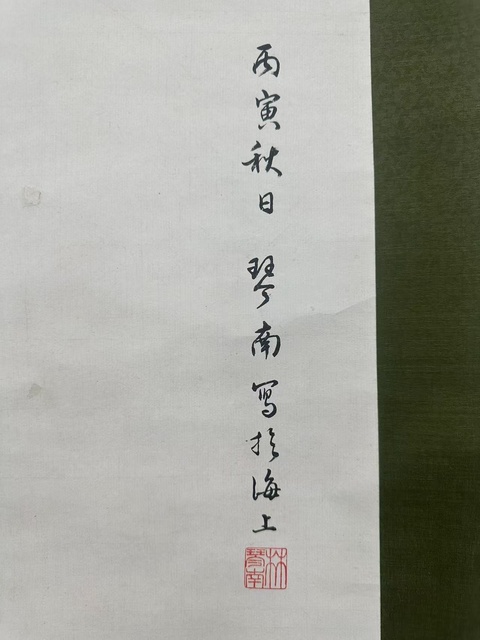 丙寅秋日 琴南寫於海上
林琴南